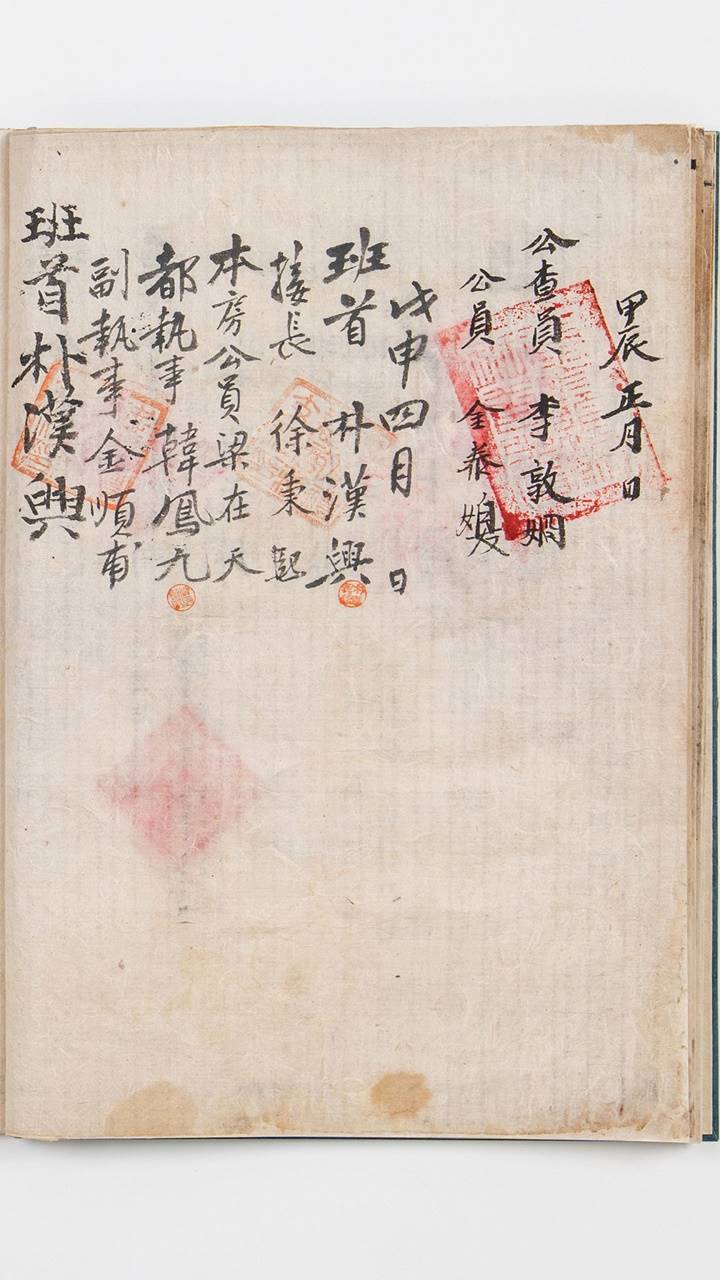 甲辰正月 日
公查員 李敦嫺
公員 金泰
戊申四月 日
班首 朴漢興
接長 徐秉熙
本房公員梁在天
都執事 韓鳳九
副執事金順甫
班首朴漢興